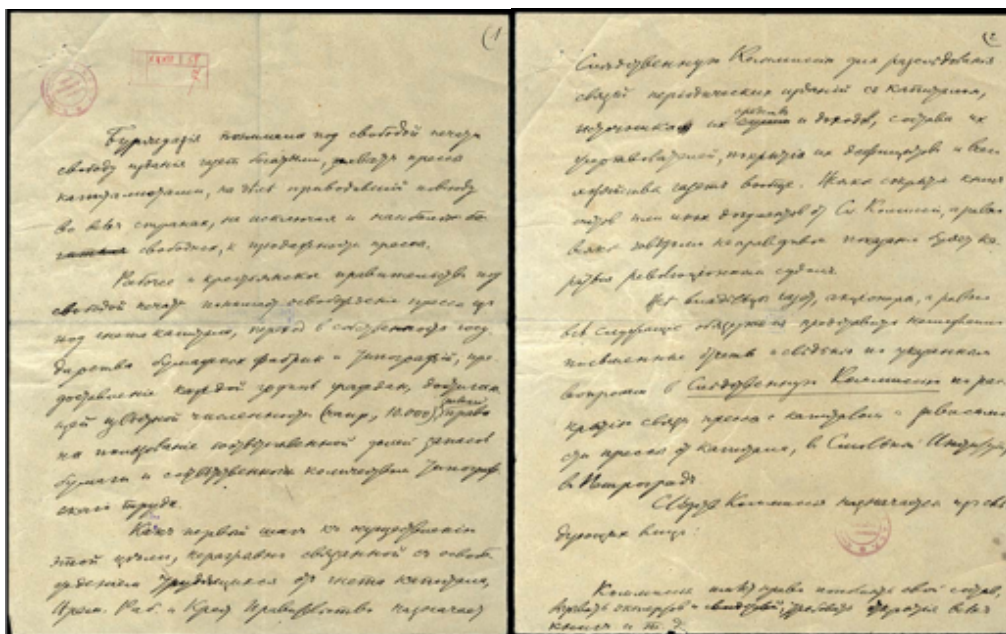 (1
Буржуазія понимала под свободой печати
свободу изданія газет богатыми, захвата прессы
капиталистами, на дѣлѣ приводившей повсюду
во всѣх странах, не исключая и наиболѣе
свободных, к продажности прессы.
Рабочее и крестьянское правительство под
свободой печати понимает освобожденіе прессы из
под гнета капитала, переход в собственность госу
дарства бумажных фабрик и типографій, пре
доставленіе каждой группѣ граждан, достигш
ей извѣстной численности (напр., 10.000), равное право
на пользованіе соотвѣтственной долей запасов
бумаги и соотвѣтственным количеством типограф
скаго труда.
Какъ первый шагъ къ осуществленію
этой цѣли, неразрывно связанной съ освобо
жденіем трудящихся отъ гнета капитала,
Врем. Раб. и Крест. Правительство назначает
(2
Слѣдственную Коммиссію для разслѣдованія
связей періодических изданій съ капиталом,
источников их средств и доходов, состава их
жертвователей, покрытія их дефицитов и всего
хозяйства газетъ вообще. Всякое сокрытіе книг,
счетов или иных документов от Сл. Коммиссіи, а равно
всякія завѣдомо неправдивыя показанія будут ка
раться революціонным судом.
Всѣ владѣльцы газет, акціонеры, а равно
всѣ служащіе обязаны представить немедленно
письменные отчеты и свѣдѣнія по указанным
вопросам в Слѣдственную Коммиссію по рас
крытію связи прессы с капиталом и зависимо
сти прессы от капитала, в Смольный Институт,
в Петроградъ.
Слѣдств. Коммиссія назначается из слѣ
дующих лиц:
Коммиссія имѣетъ право пополнять свой состав,
вызвать экспертов и свидѣтелей, требовать открытія всѣх
книг и т. д.